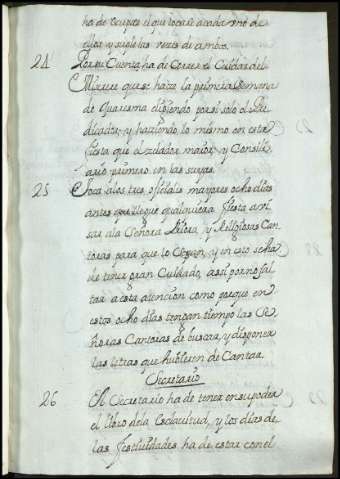 ha de ocupar el que tocare a cada uno de
ellos y suplir las vezes de ambos.
24 Por su Cuenta, ha de Correr el Cuidar del
Misere que se haze la primera semana
de Quaresma eligiendo por si solo el Pre
dicador, y haciendo lo mismo en esta
fiesta que el zelador maior, y Consili
ario primero en las suyas.
25 Toca alos tres ofiziales mayores ocho dias
antes que llegue qualquiera fiesta avi
sar ala Señora Priora, y Religiosas Can
toras para que lo sepan, y en esto se ha
de tener gran Cuidado, assi por no fal
tar a esta atencion como porque en
estos ocho dias tengan tiempo las Se
ñoras Cantoras de buscar, y disponer
las letras que hubieren de Cantar.
Secretario
26 El Secretario ha de tener en su poder
el libro dela Esclavitud, y los dias de
las festividades ha de estar con el